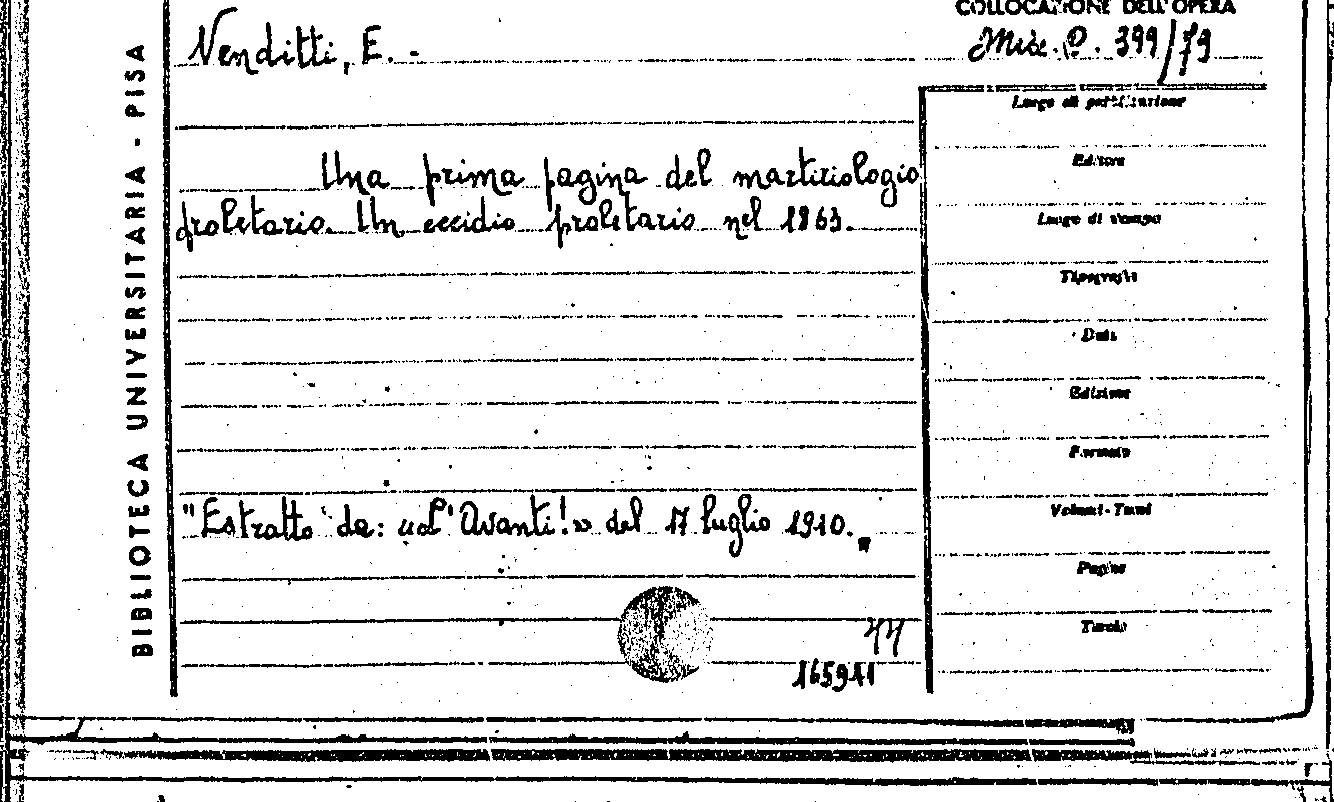 COLLOCAZIONE DELL'OPERA
Venditti, E. -
Misc. P. 399/79
BIBLIOTECA UNIVERSITARIA - PISA
Una prima pagina del martiriologio
proletario. Un eccidio proletario nel 1863.
"Estratto da: «L'Avanti!» del 17 luglio 1910."
165941
Luogo di pubblicazione
Editore
Luogo di stampa
Tipografia
Data
Edizione
Formato
Volumi-Tomi
Pagine
Tavole